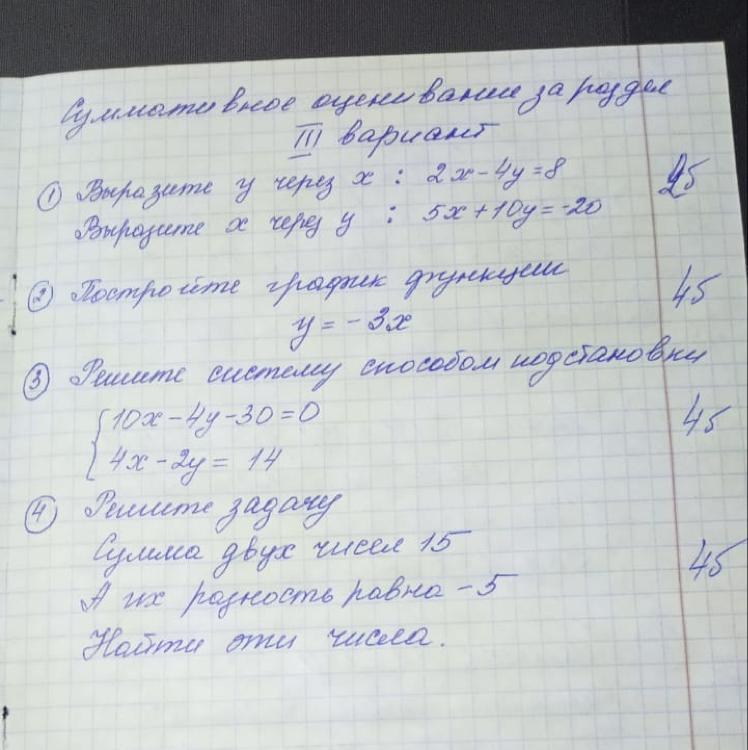 Суммативное оценивание за раздел
III вариант
① Выразите y через x : 2x-4y=8 2б
Выразите x через y : 5x+10y=-20
② Постройте график функции 4б
y=-3x
③ Решите систему способом подстановки
{10x-4y-30=0 4б
4x-2y= 14
④ Решите задачу
Сумма двух чисел 15 4б
А их разность равна -5
Найти эти числа.